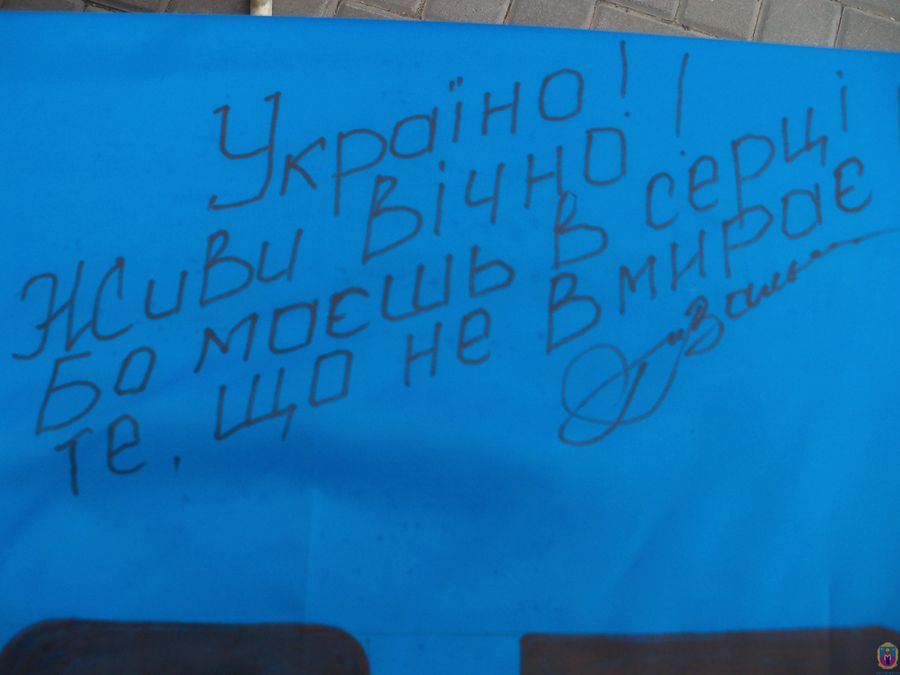 Україно!
Живи вічно!
Бо маєшь в серці
те, що не вмирає